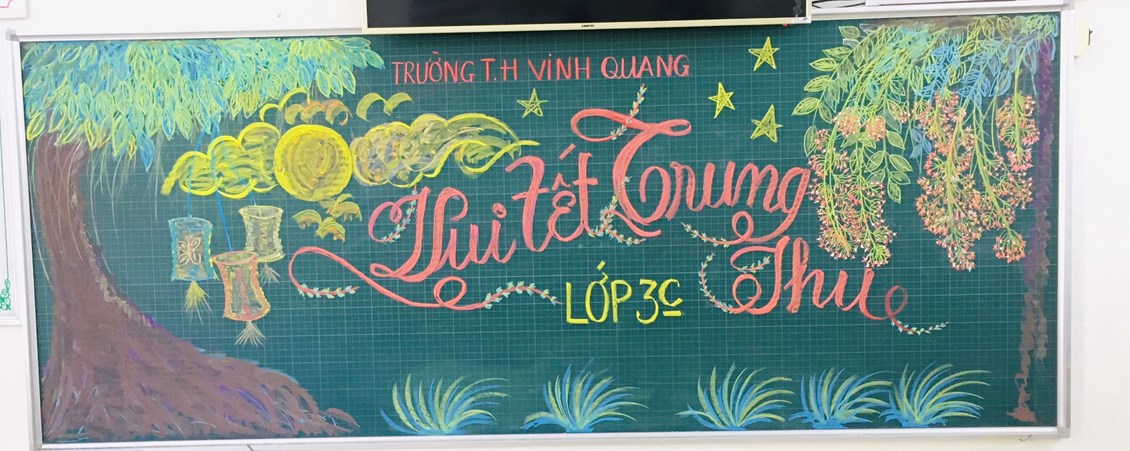 TRƯỜNG T.H VINH QUANG
Vui Tết Trung
Thu
LỚP 3C